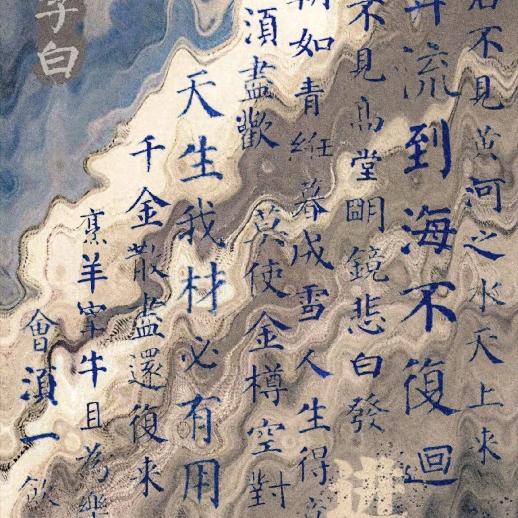 君不見黃河之水天上來
奔流到海不復迴
不見高堂明鏡悲白發
朝如青絲暮成雪人生得意
須盡歡莫使金樽空對
天生我材必有用
千金散盡還復來
烹羊宰牛且為樂
會須一飲
李白
進